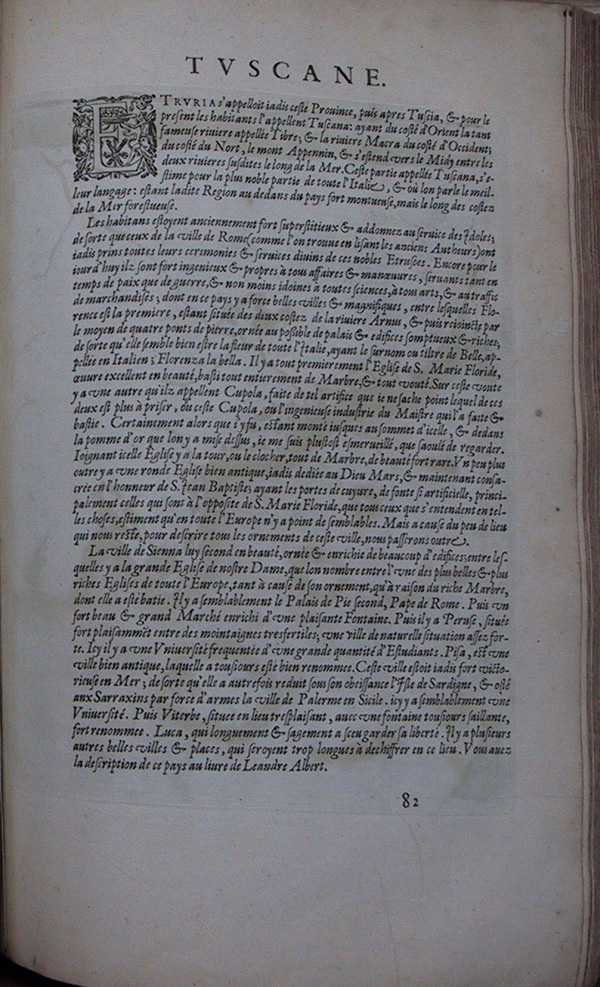 TVSCANE.
ETRVRIA s'appelloit iadis ceste Prouince, puis apres Tuscia, & pour le
present les habitants l'appellent Tuscana: ayant du costé d'Orient la tant
fameuse riuiere appellée Tibre; & la riuiere Macra du costé d'Occident;
du costé du Nort, le mont Appennin, & s'estend vers le Midy entre les
deux riuieres susdites le long de la Mer. Ceste partie appellée Tuscana, s'e-
stime pour la plus noble partie de toute l'Italie, & où lon parle le meil-
leur langage: estant ladite Region au dedans du pays fort montueuse, mais le long des costez
de la Mer forestueuse.
Les habitans estoyent anciennement fort superstitieux & addonnez au seruice des Idoles;
de sorte que ceux de la ville de Rome (comme l'on trouue en lisant les anciens Autheurs) ont
iadis prins toutes leurs ceremonies & seruices diuins de ces nobles Etrusces. Encore pour le
iour d'huy ilz sont fort ingenieux & propres à tous affaires & manœuures, seruants tant en
temps de paix que de guerre, & non moins idoines à toutes sciences, à tous arts, & au trafic
de marchandises; dont en ce pays y a force belles villes & magnifiques, entre lesquelles Flo-
rence est la premiere, estant située des deux costez de la riuiere Arnus, & puis reioinctée par
le moyen de quatre ponts de pierre, ornée au possible de palais & edifices somptueux & riches,
de sorte qu'elle semble bien estre la fleur de toute l'Italie, ayant le surnom ou tiltre de Belle, ap-
pellée en Italien; Florenza la bella. Il y a tout premierement l'Eglise de S. Marie Floride,
œuure excellent en beauté, basti tout entierement de Marbre, & tout vouté. Sur ceste voute
y a vne autre qu'ilz appellent Cupola, faite de tel artifice que ie ne sache point lequel de ces
deux est plus à priser, ou ceste Cupola, ou l'ingenieuse industrie du Maistre qui l'a faite &
bastie. Certainement alors que i'y fu, estant monté iusques au sommet d'icelle, & dedans
la pomme d'or que lon y a mise dessus, ie me suis plustost esmerueillé, que saoulé de regarder.
Ioignant icelle Eglise y a la tour, ou le clocher, tout de Marbre, de beauté fort rare. Vn peu plus
outre y a vne ronde Eglise bien antique, iadis dediée au Dieu Mars, & maintenant consa-
crée en l'honneur de S. Jean Baptiste; ayant les portes de cuyure, de fonte si artificielle, princi-
palement celles qui sont à l'opposite de S. Marie Floride, que tous ceux que s'entendent en tel-
les choses, estiment qu'en toute l'Europe n'y a point de semblables. Mais a cause du peu de lieu
qui nous reste, pour descrire tous les ornements de ceste ville, nous passerons outre.
La ville de Sienna luy second en beauté, ornée & enrichie de beaucoup d'edifices: entre les-
quelles y a la grande Eglise de nostre Dame, que lon nombre entre l'vne des plus belles & plus
riches Eglises de toute l'Europe, tant à cause de son ornement, qu'à raison du riche Marbre,
dont elle a esté batie. Il y a semblablement le Palais de Pie second, Pape de Rome. Puis vn
fort beau & grand Marché enrichi d'vne plaisante Fontaine. Puis il y a Peruse, située
fort plaisammēt entre des montaignes tresfertiles; vne ville de naturelle situation assez for-
te. Icy il y a vne Vniuersité frequentée d'vne grande quantité d'Estudiants. Pisa, est vne
ville bien antique, laquelle a tousiours esté bien renommee. Ceste ville estoit iadis fort victo-
rieuse en Mer; de sorte qu'elle a autrefois reduit sous son obeissance l'Isle de Sardigne, & osté
aux Sarraxins par force d'armes la ville de Palerme en Sicile. icy y a semblablement vne
Vniuersité. Puis Viterbe, situee en lieu tresplaisant, auec vne fontaine tousiours saillante,
fort renommee. Luca, qui longuement & sagement a sceu garder sa liberté. Il y a plusieurs
autres belles villes & places, qui seroyent trop longues à dechiffrer en ce lieu. Vous auez
la description de ce pays au liure de Leandre Albert.
82